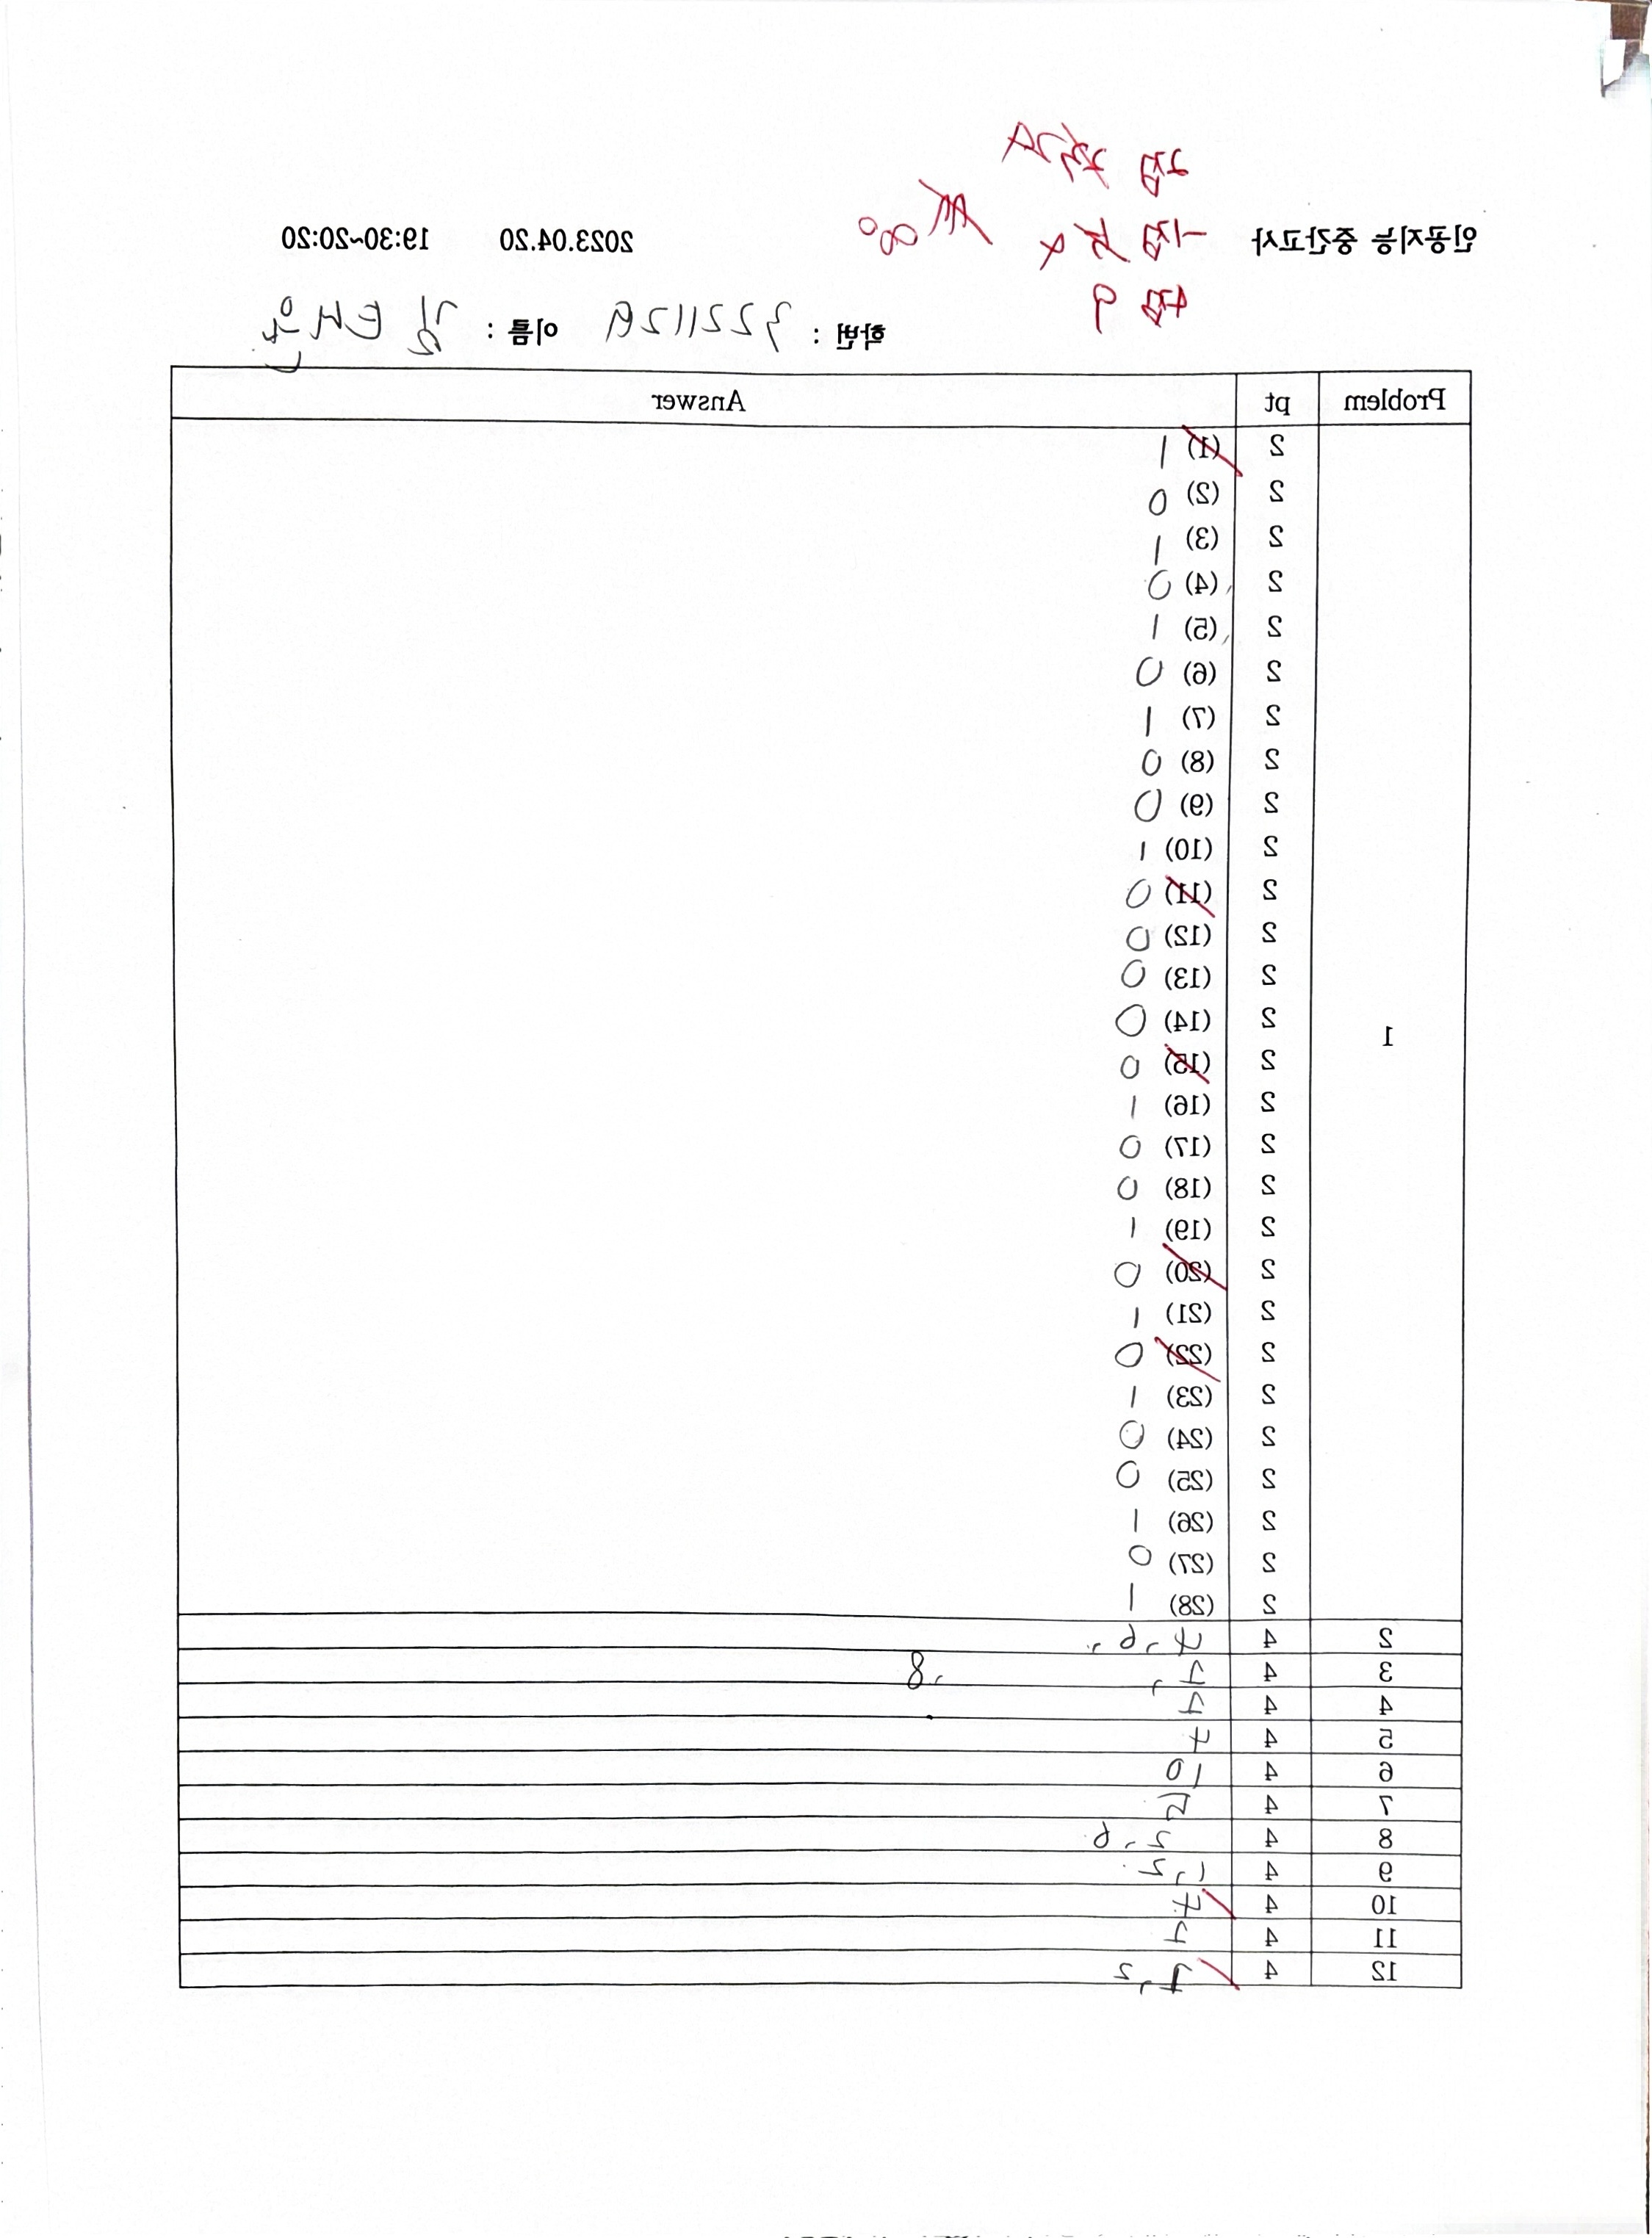 인공지능 중간고사 2023.04.20 19:30~20:20
학번 : 이름 : 김태완
Problem pt Answer
1
2 (1) 1
2 (2) 0
2 (3) 1
2 (4) 0
2 (5) 1
2 (6) 0
2 (7) 1
2 (8) 0
2 (9) 0
2 (10) 1
2 (11) 0
2 (12) 0
2 (13) 0
2 (14) 0
2 (15) 0
2 (16) 1
2 (17) 0
2 (18) 0
2 (19) 1
2 (20) 0
2 (21) 1
2 (22) 0
2 (23) 1
2 (24) 0
2 (25) 0
2 (26) 1
2 (27) 0
2 (28) 1
2 4
3 4
4 4
5 4
6 4 10
7 4
8 4 2, 6
9 4 1, 2
10 4
11 4
12 4